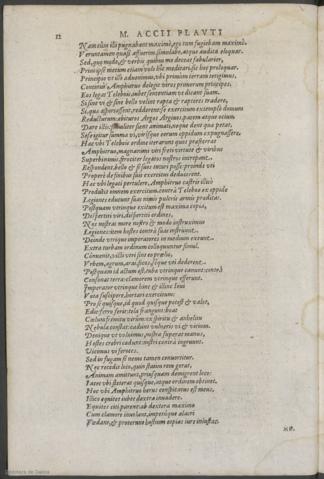 12 M. ACCII PLAVTI
Nam cum illi pugnabant maximè, ego tum fugiebam maximè.
Veruntamen quasi affuerim simulabo, atque audita eloquar.
Sed, quo modo, & verbis quibus me deceat fabularier,
Principiò mecum etiam volo hîc meditari. sic hoc proloquar.
Principio vt illò aduenimus, vbi primùm terram tetigimus,
Continuò Amphitruo delegit viros primorum principes:
Eos legat: Telobois iubet sententiam vt dicant suam.
Si sine vi & sine bello velint rapta & raptores tradere,
Si, quæ asportassent, redderent: se exercitum extemplò domum
Reducturum: abituros Argos Argiuos: pacem atque otium
Dare illis: aliter sient animati, neque dent quæ petat,
Sese igitur summa vi, virisque eorum oppidum expugnassere.
Hæc vbi Telobois ordine iterarunt quos præfecerat
Amphitruo, magnanimi viri freti virtute & viribus
Superbi nimis ferociter legatos nostros increpant.
Respondent, bello & se & suos tutari posse: proinde vti
Properè de finibus suis exercitus deducerent.
Hæc vbi legati pertulere, Amphitruo castris illicò
Producit omnem exercitum. contrà Teloboæ ex oppido
Legiones educunt suas nimis pulcris armis præditas.
Postquam vtrinque exitum est maxima copia,
Dispertiti viri, dispertiti ordines,
Nos nostras more nostro & modo instruximus
Legiones: item hostes contrà suas instruunt.
Deinde vtrique imperatores in medium exeunt.
Extra turbam ordinum colloquuntur simul.
Conuenit, victi vtri sint eo prælio,
Vrbem, agrum, aras, focos, seque vti dederent.
Postquam id actum est, tubæ vtrinque canunt: contrà
Consonat terra: clamorem vtrinque efferunt.
Imperator vtrinque hinc & illinc Ioui
Vota suscipere, hortari exercitum:
Pro se quisque, id quod quisque potest & valet,
Edit: ferro ferit: tela frangunt: boat
Cælum fremitu virûm: ex spiritu & anhelitu
Nebula constat: cadunt vulneris vi & virium.
Denique vt voluimus, nostra superat manus,
Hostes crebri cadunt: nostri contrà ingruunt.
Vicimus vi feroces.
Sed in fugam se nemo tamen conuertitur.
Nec recedit loco, quin statim rem gerat.
Animam amittunt, priusquam demigrent loco:
Quisque vt steterat iacet, atque ordinem obtinet.
Hoc vbi Amphitruo herus conspicatus est meus,
Illico equites iubet dextera inuadere.
Equites citi parent: ab dextera maximo
Cum clamore inuolant, impetúque alacri
Fœdant, & proterunt hostium copias iure iniustas.